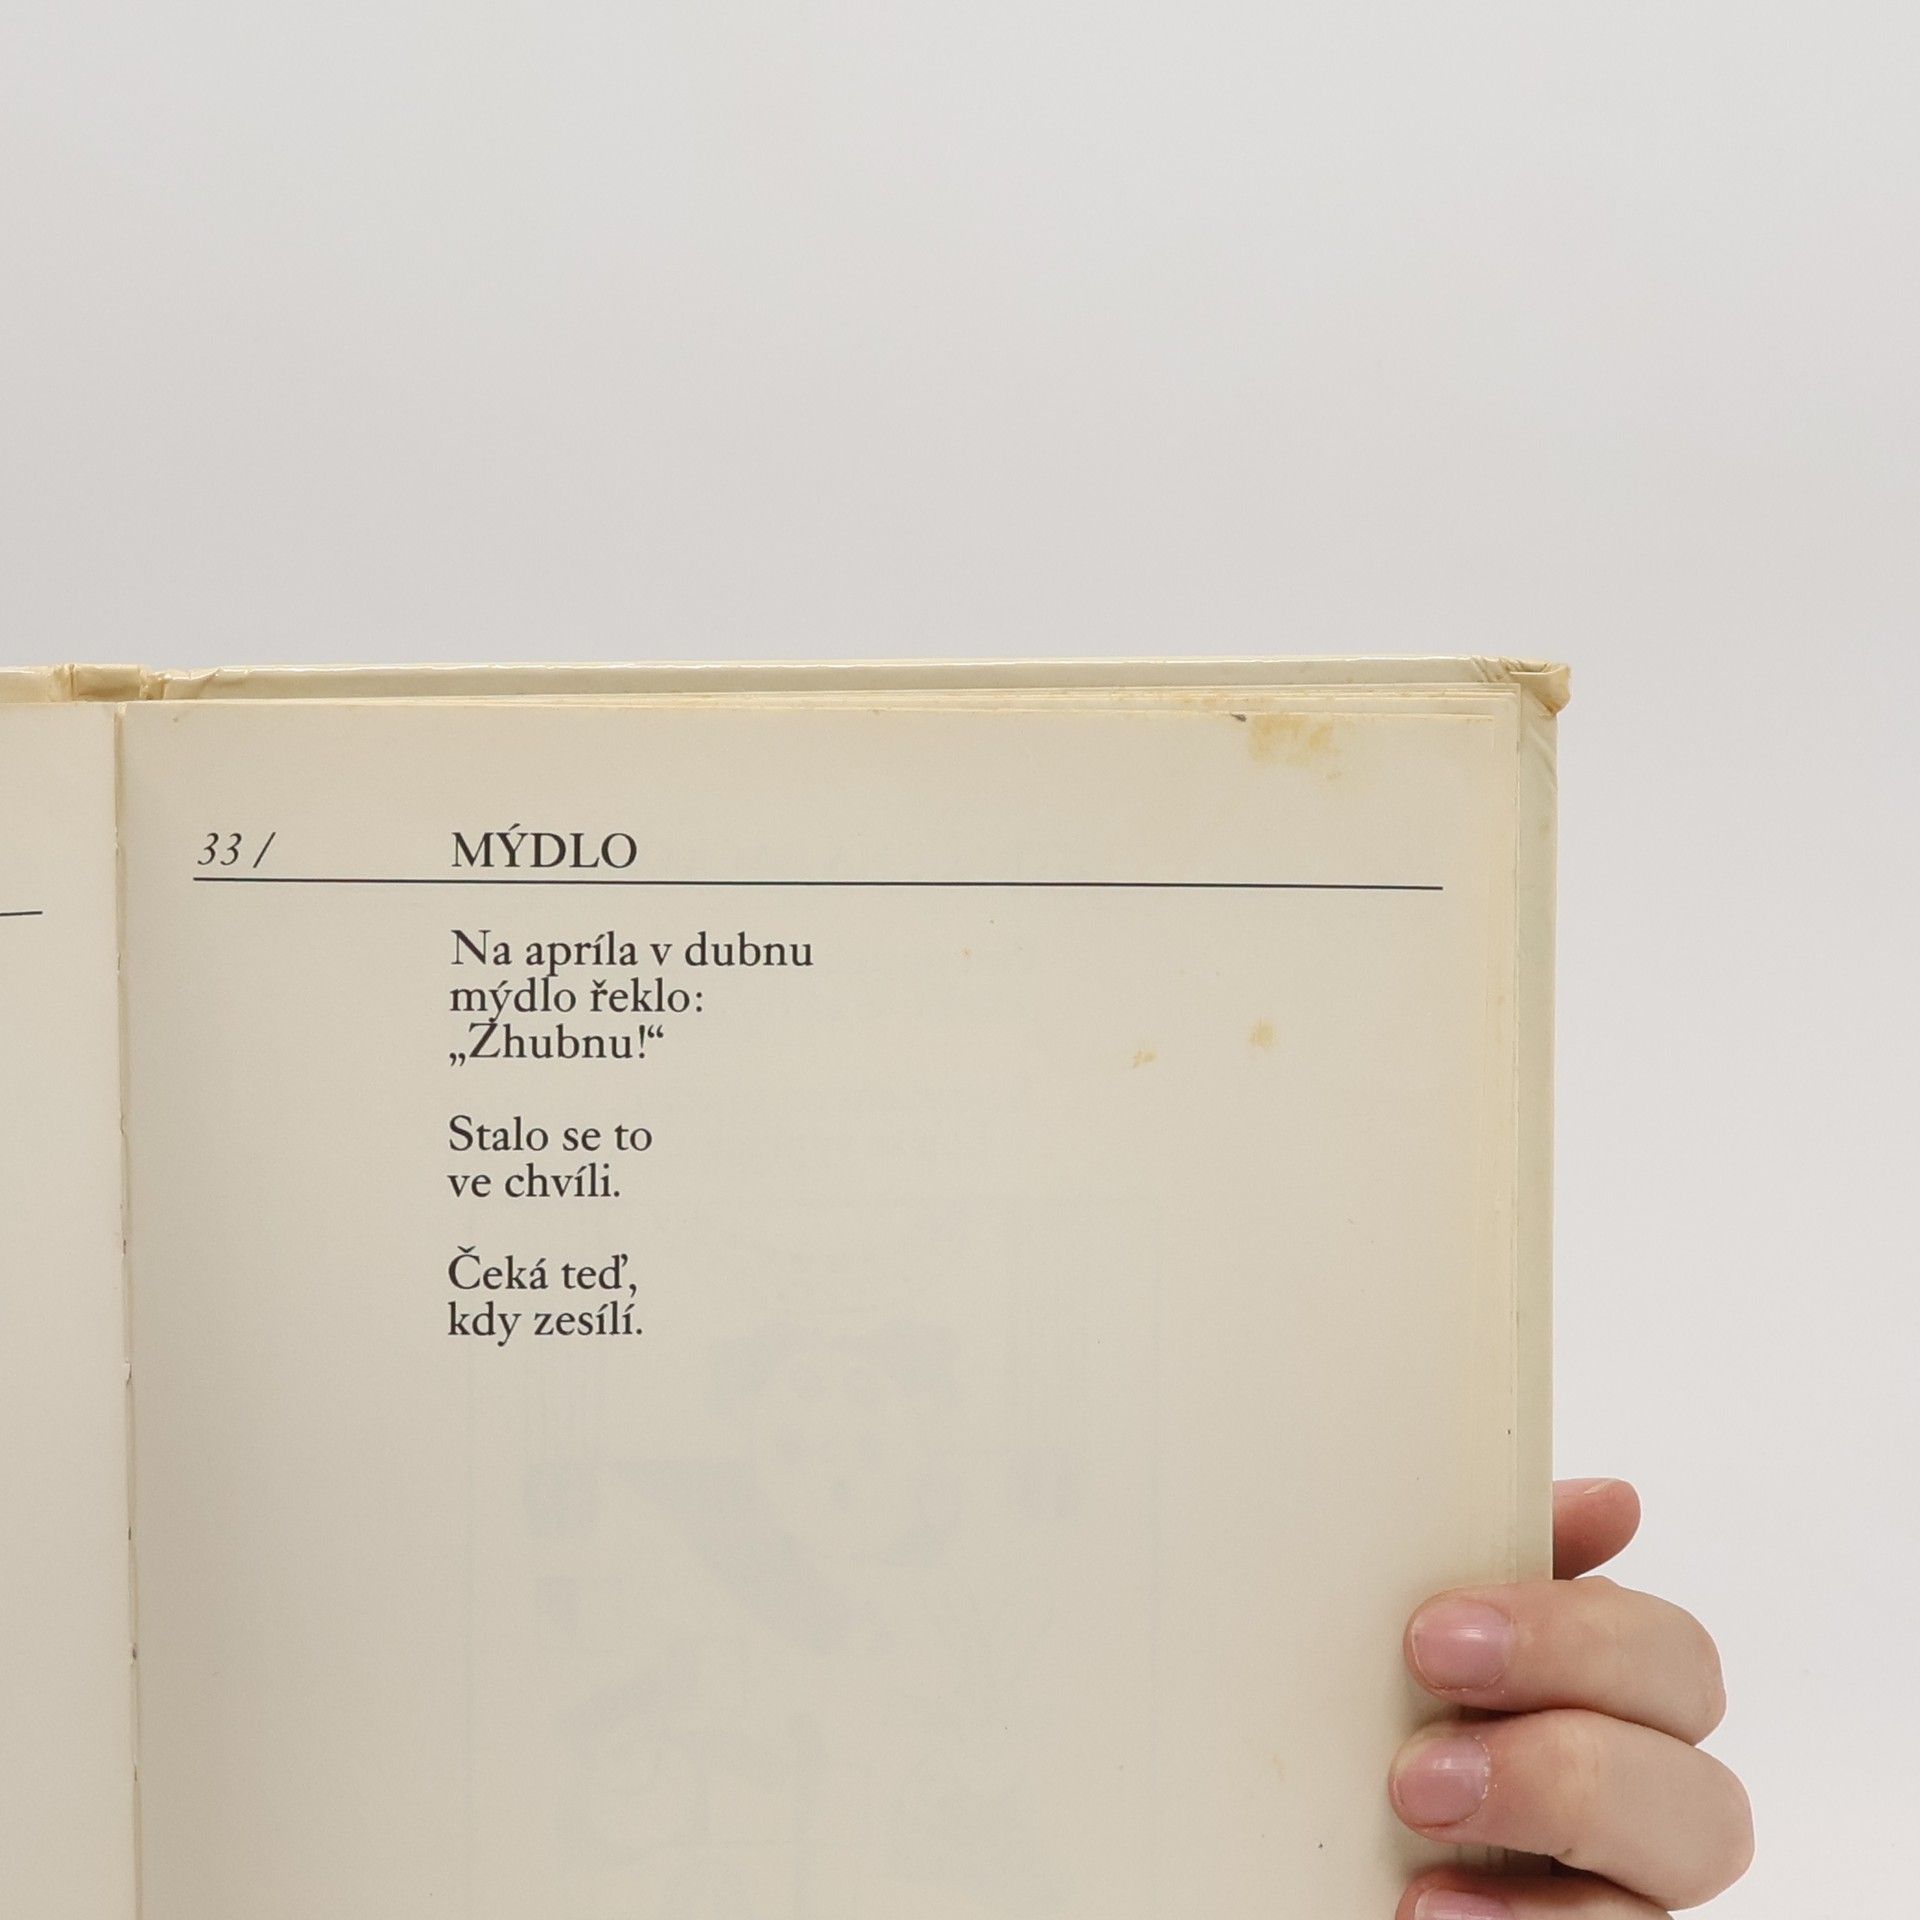 33 / MÝDLO
Na apríla v dubnu
mýdlo řeklo:
„Zhubnu!“
Stalo se to
ve chvíli.
Čeká teď,
kdy zesílí.